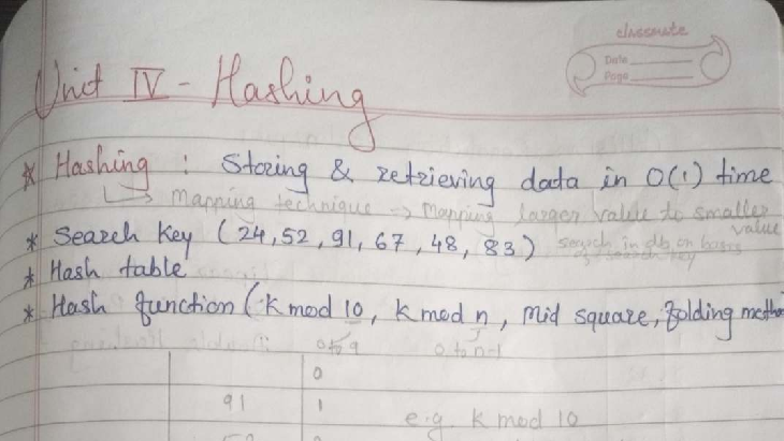 classmate
Date
Page
Unit IV - Hashing
* Hashing : Storing & retrieving data in O(1) time
↳ mapping technique → Mapping larger value to smaller value
* Search Key (24, 52, 91, 67, 48, 83) search in db on basis of search key
* Hash table
* Hash function (K mod 10, K mod n, Mid square, folding method
0 to 9 0 to n-1
0
91 1
e.g. K mod 10